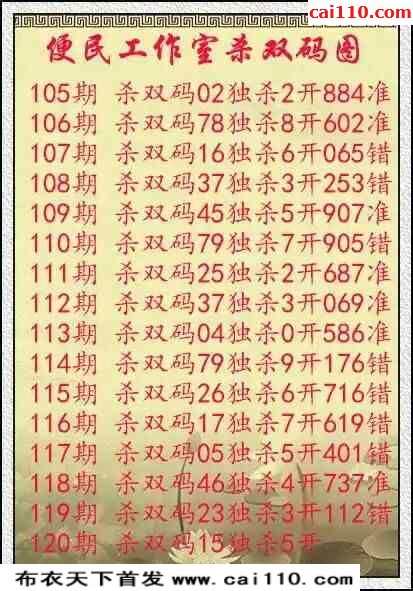 cai110.com
便民工作室杀双码图
105期 杀双码02独杀2开884准
106期 杀双码78独杀8开602准
107期 杀双码16独杀6开065错
108期 杀双码37独杀3开253错
109期 杀双码45独杀5开907准
110期 杀双码79独杀7开905错
111期 杀双码25独杀2开687准
112期 杀双码37独杀3开069准
113期 杀双码04独杀0开586准
114期 杀双码79独杀9开176错
115期 杀双码26独杀6开716错
116期 杀双码17独杀7开619错
117期 杀双码05独杀5开401错
118期 杀双码46独杀4开737准
119期 杀双码23独杀3开112错
120期 杀双码15独杀5开
布衣天下首发 www.cai110.com